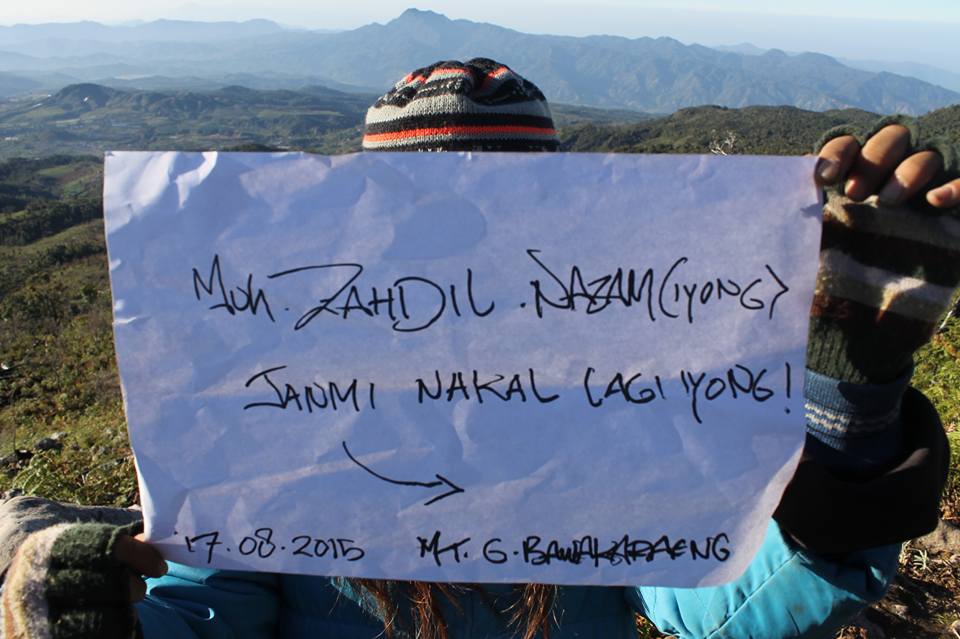 Muh. ZAHDIL .NAZAM (IYONG)
JANMI NAKAL LAGI IYONG!
17.08.2015 MT. G. BAWAKARAENG